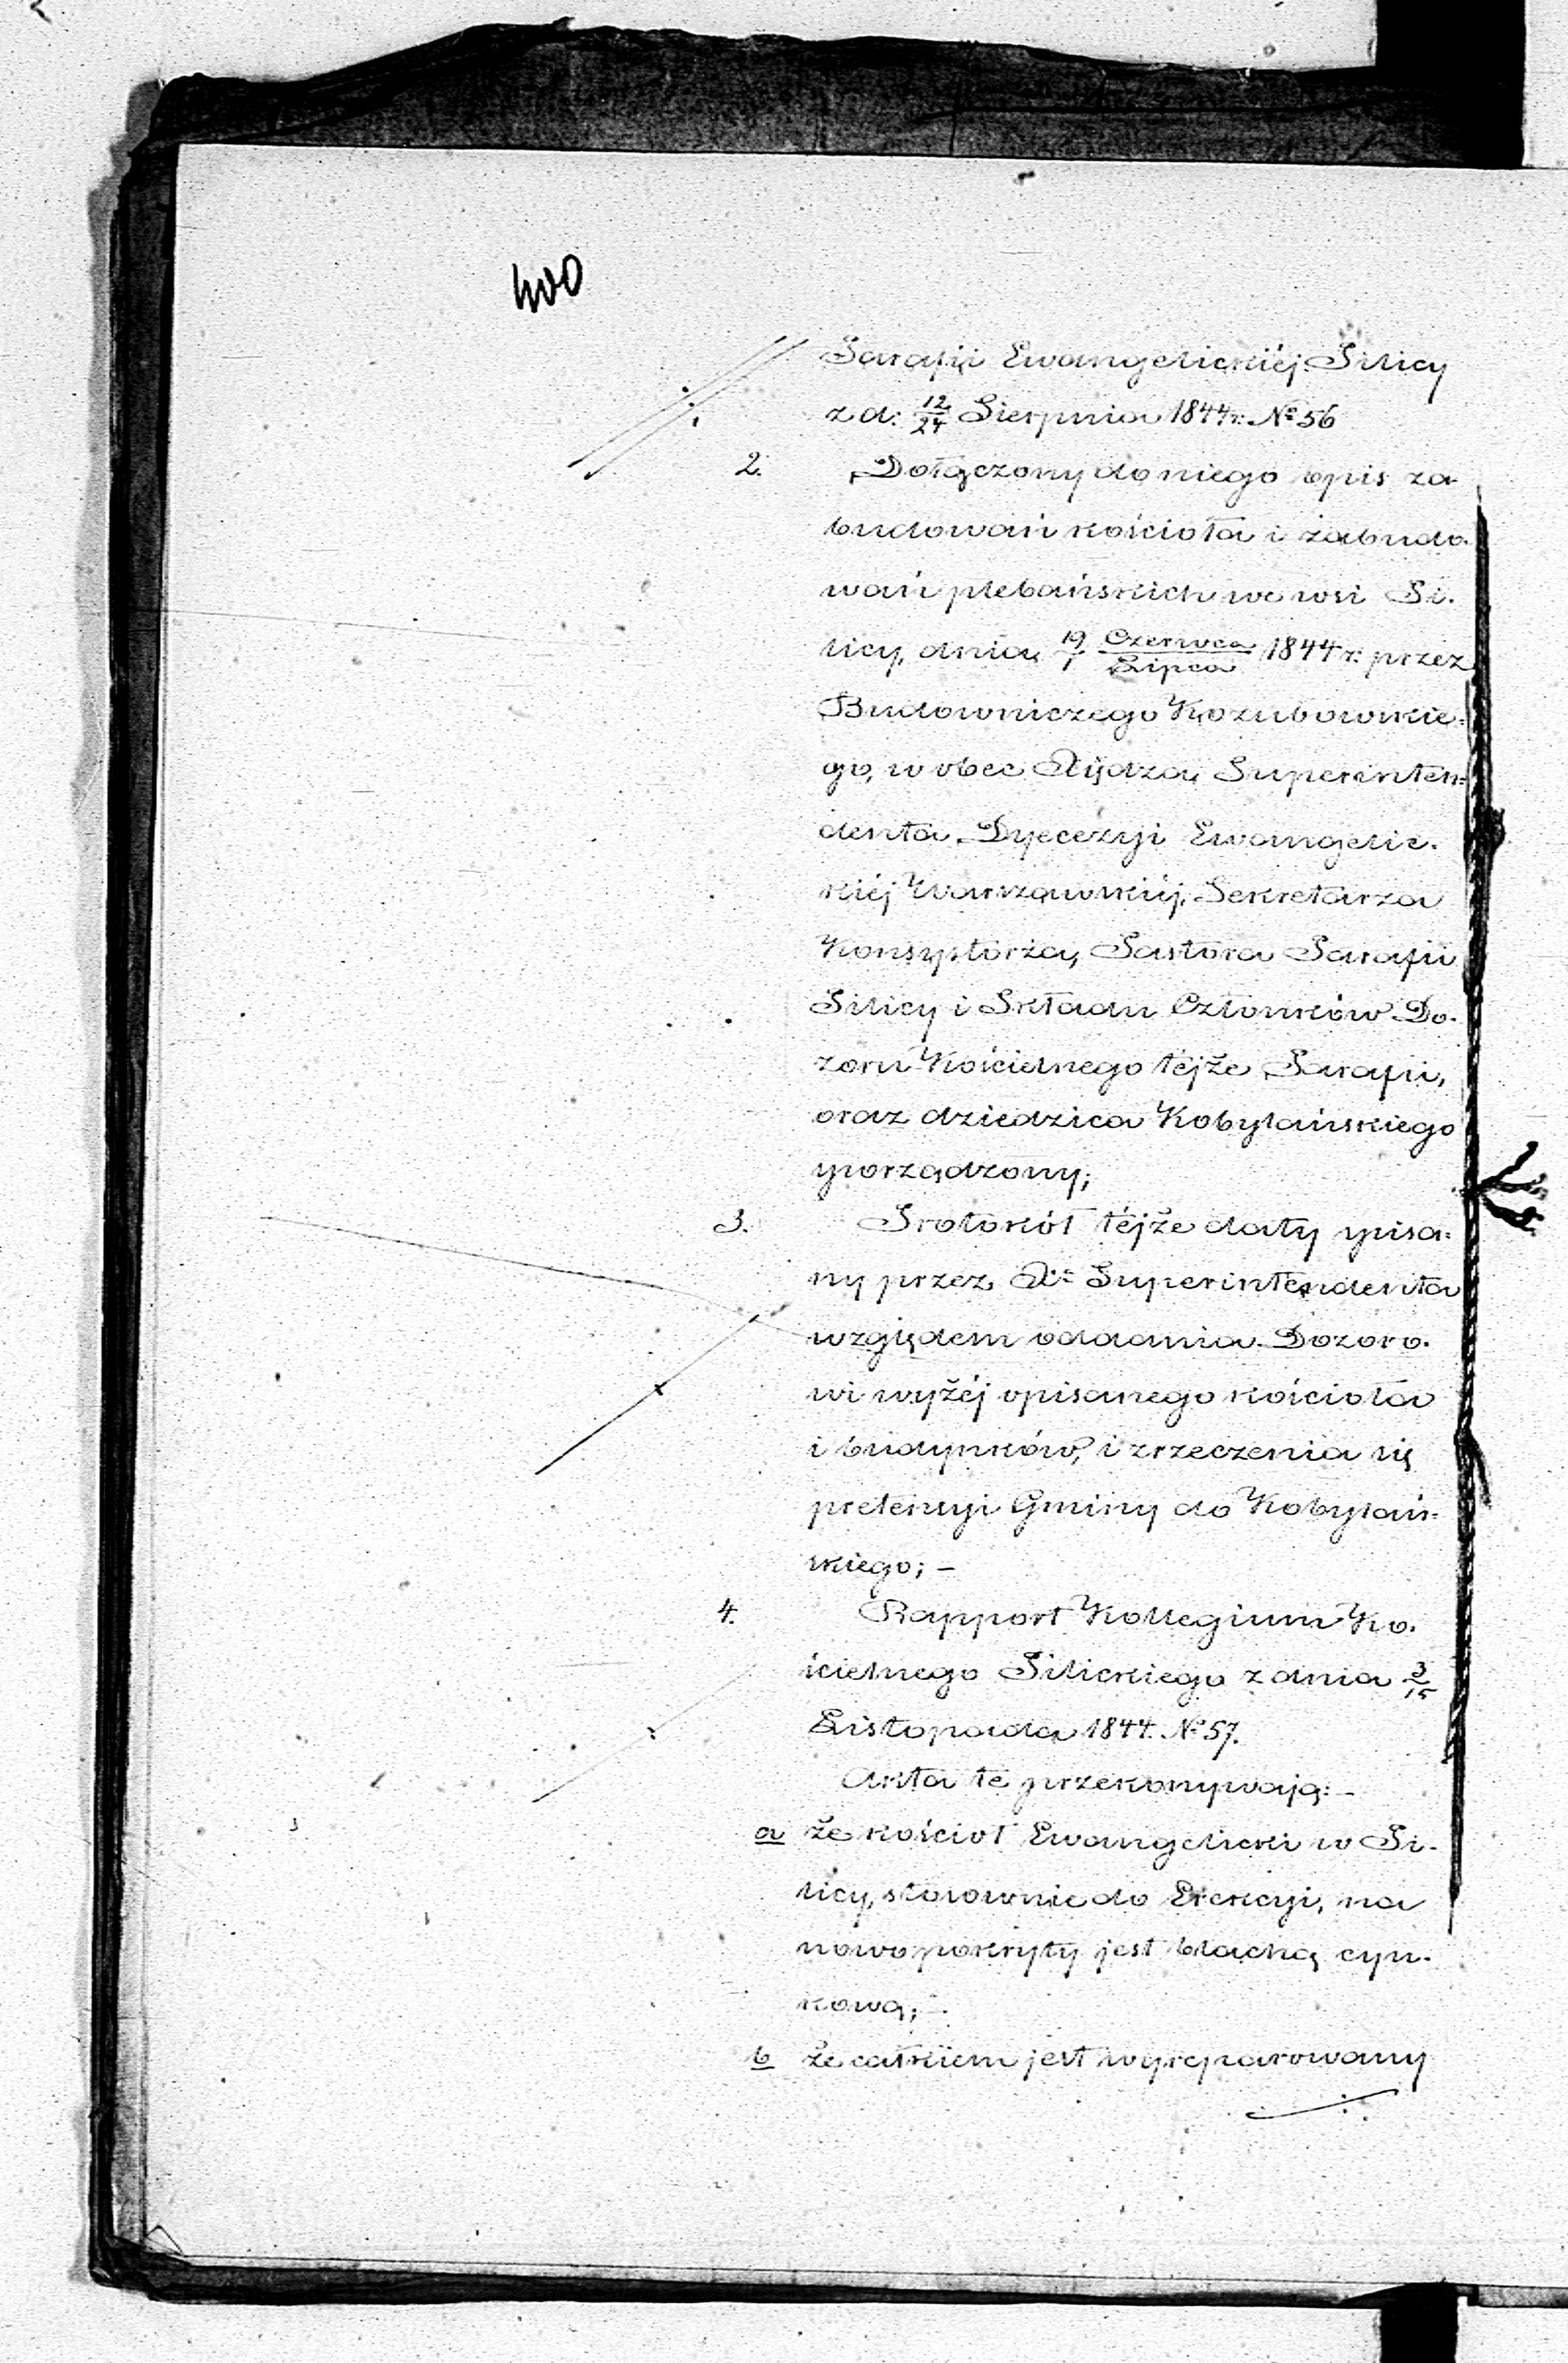 400
Parafii Ewangelickiéj Pilicy
z d: 12/24 Sierpnia 1844 r: № 56
2. Dołączony do niego opis za-
budowań kościoła i zabudo-
wań plebańskich we wsi Pi-
licy, dnia 19/1 Czerwca/Lipca 1844 r: przez
Budowniczego Kozubowskie-
go, w obec Xiędza Superinten-
denta Dyecezyi Ewangelic-
kiéj Warszawskiéj, Sekretarza
Konsystorza, Pastora Parafii
Pilicy i Składu Członków Do-
zoru Kościelnego téjże Parafii,
oraz dziedzica Kobylańskiego
sporządzony;
3. Protokół téjże daty spisa-
ny przez Xa Superintendenta
względem oddania Dozoro-
wi wyżéj opisanego kościoła
i budynków, i zrzeczenia się
pretensyi Gminy do Kobylań-
skiego; -
4. Rapport Kollegium Ko-
ścielnego Pilickiego z dnia 3/15
Listopada 1844. № 57.
Akta te przekonywają: -
a że kościoł Ewangelicki w Pi-
licy, stosownie do Erekcyi, na
nowo pokryty jest blachą cyn-
kową; -
b że całkiem jest wyreparowany